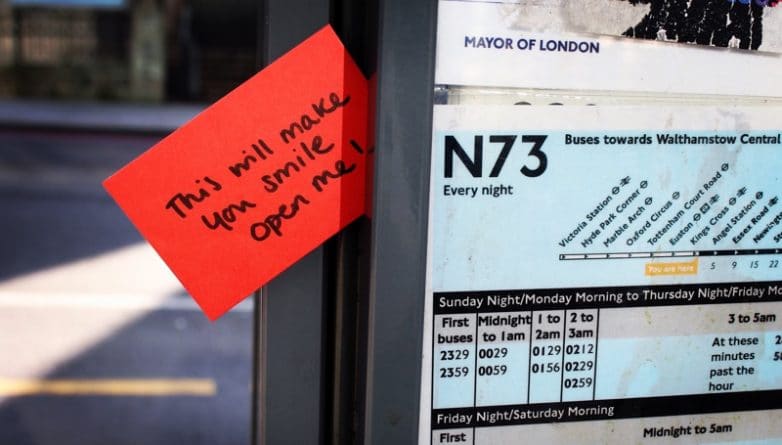 This will make
you smile
open me!
MAYOR OF LONDON
N73
Every night
Buses towards Walthamstow Central
Victoria Station
Hyde Park Corner
Marble Arch
Oxford Circus
Tottenham Court Road
Euston
Kings Cross
Angel Station
Essex Road
You are here
5 9 15 22
Sunday Night/Monday Morning to Thursday Night/Friday Mo
First buses
2329
2359
Midnight to 1am
0029
0059
1 to 2am
0129
0156
2 to 3am
0212
0229
0259
3 to 5am
At these
minutes
past the
hour
Friday Night/Saturday Morning
First
Midnight to 5am